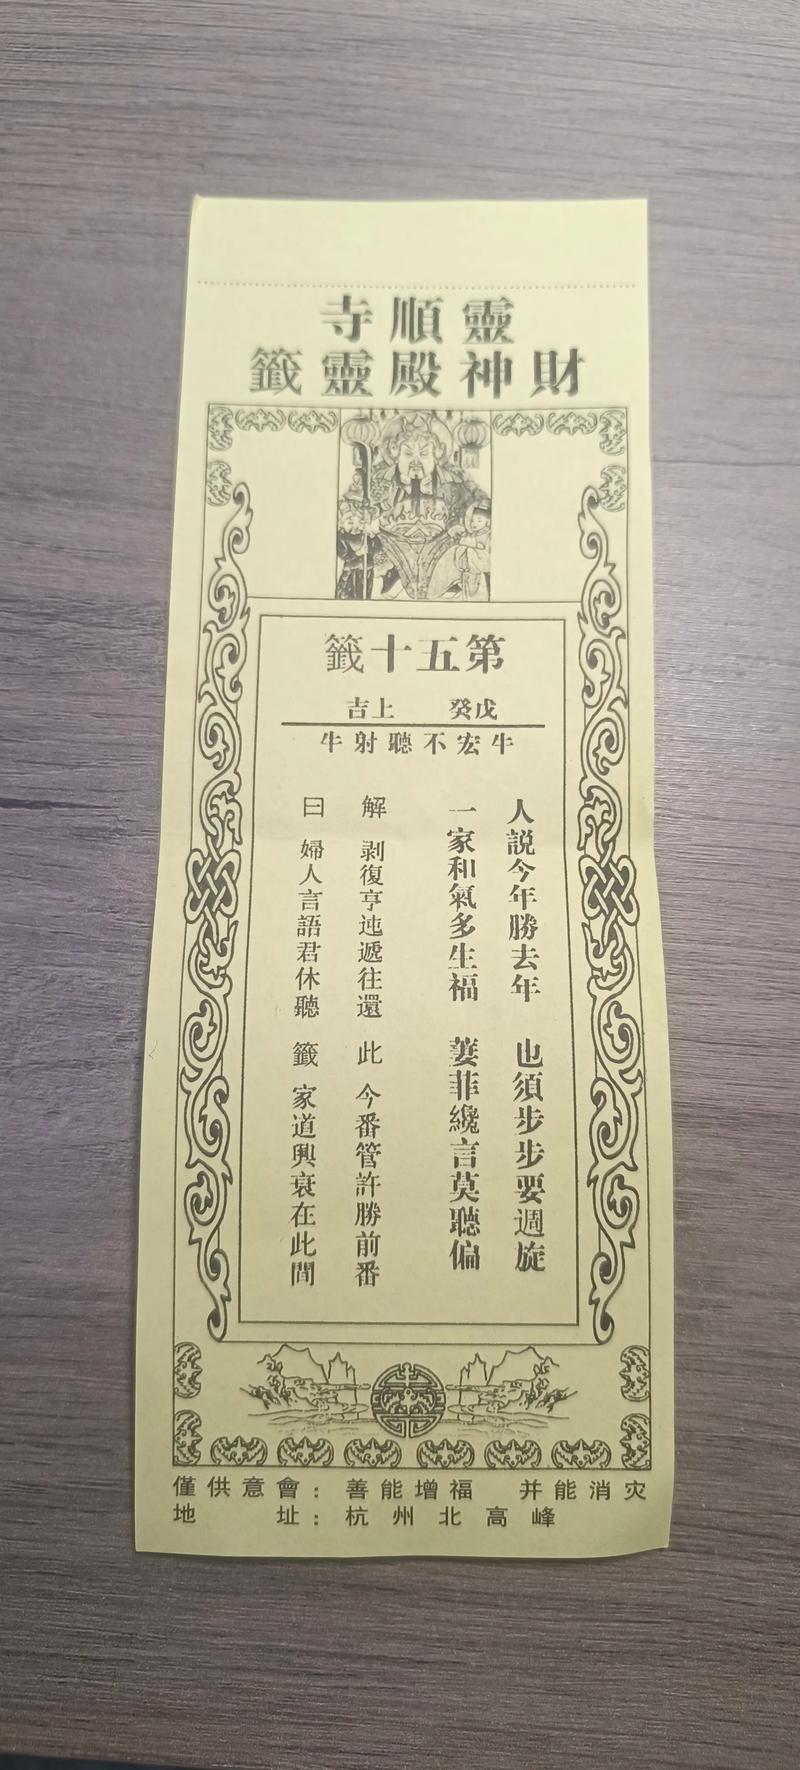 靈順寺
財神殿靈籤
第五十籤
戊癸 上吉
牛宏不聽射牛
人説今年勝去年 也須步步要週旋
一家和氣多生福 萋菲纔言莫聽偏
解 剥復亨迍遞往還 此 今番管許勝前番
曰 婦人言語君休聽 籤 家道興衰在此間
僅供意會：善能增福 并能消灾
地址：杭州北高峰